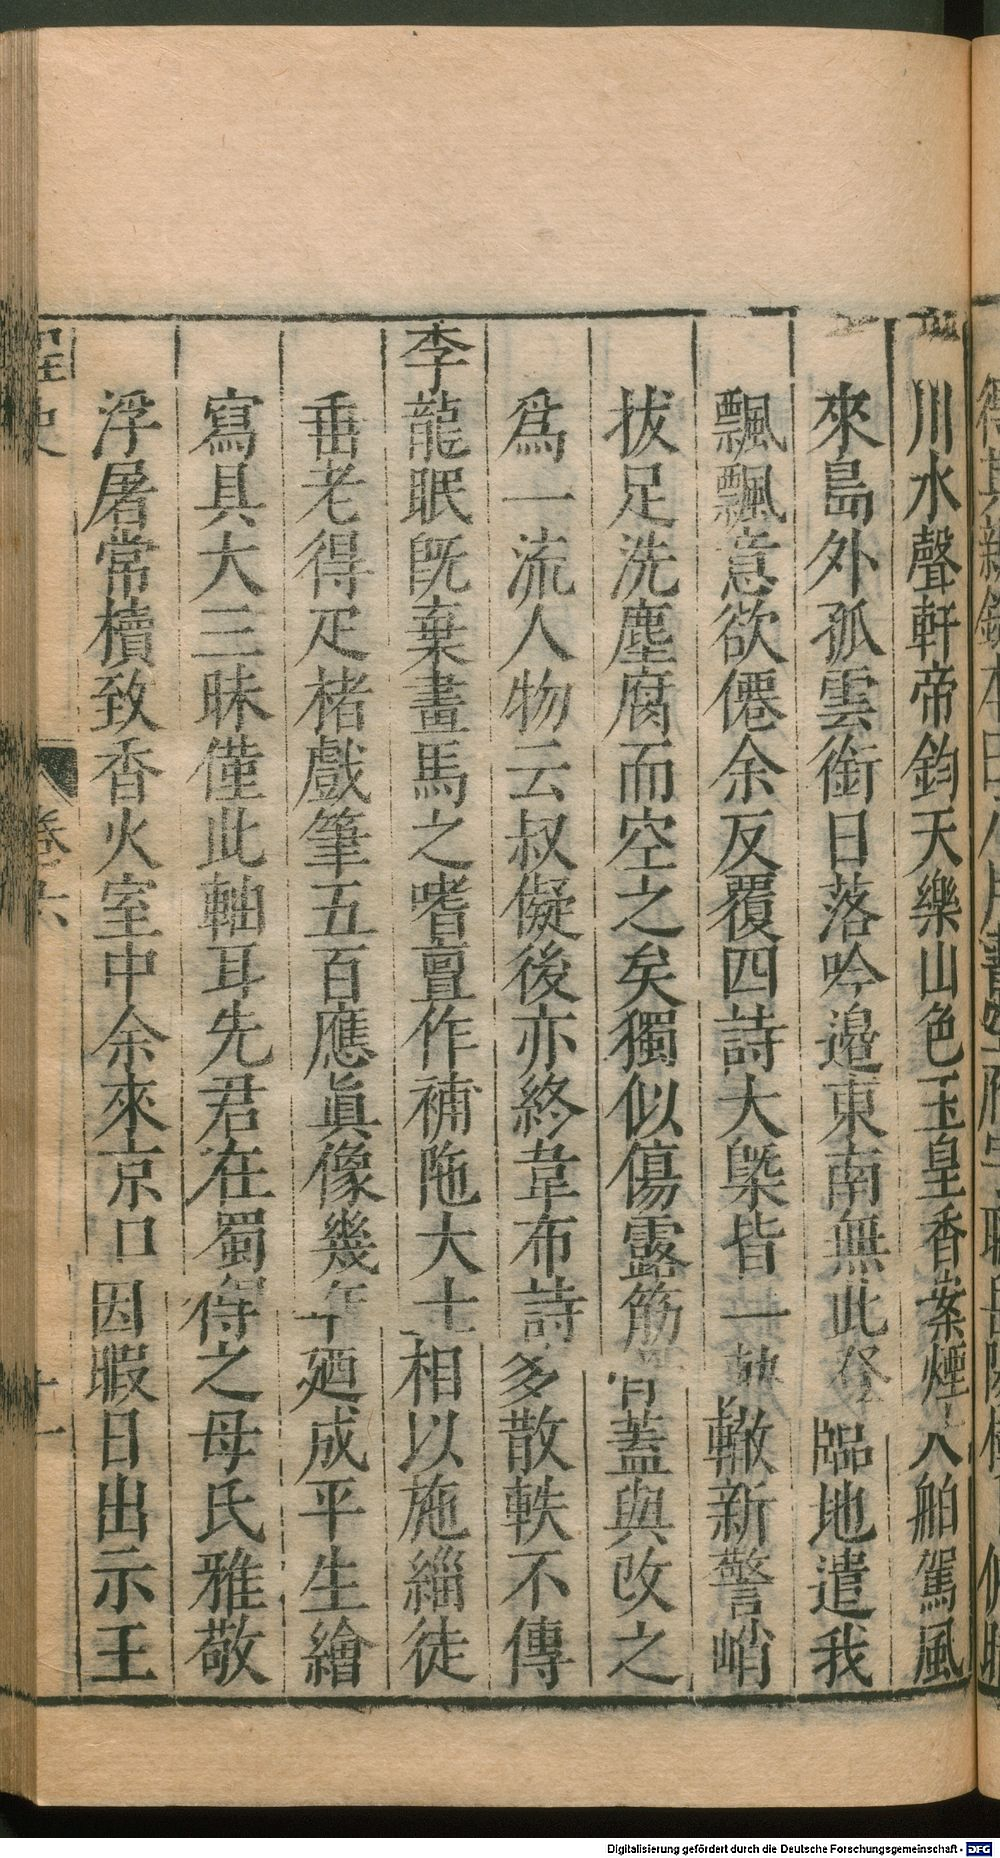 川水聲軒帝鈞天樂山色玉皇香案煙大舶駕風
來島外孤雲銜日落吟邉東南無此登臨地遣我
飄飄意欲僊余反覆四詩大槩皆一軌轍新警峭
拔足洗塵腐而空之矣獨似傷露筋骨蓋與改之
爲一流人物云叔儗後亦終韋布詩多散軼不傳
李龍眠旣棄畫馬之嗜亶作補陁大士相以施緇徒
垂老得疋楮戲筆五百應眞像幾年廼成平生繪
寫具大三昧僅此軸耳先君在蜀得之母氏雅敬
浮屠常櫝致香火室中余來京口因暇日出示王
桯史
卷六
十一
Digitalisierung gefördert durch die Deutsche Forschungsgemeinschaft - DFG